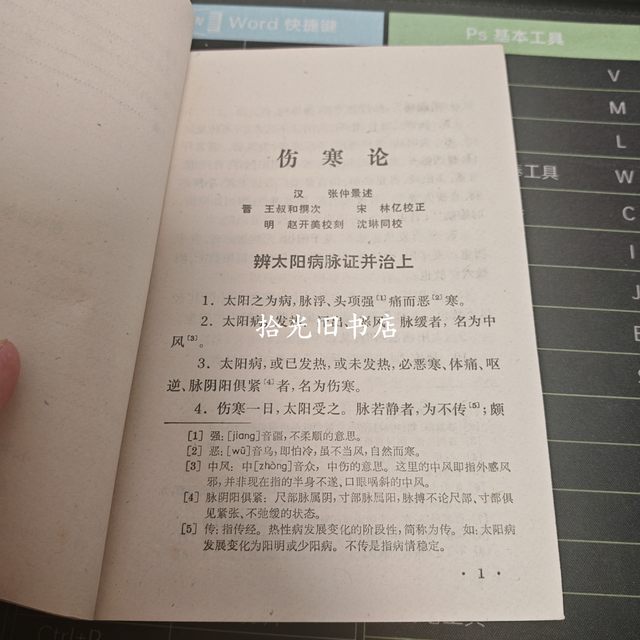 Word 快捷键
Ps 基本工具
V
M
L
W
C
I
J
B
S
工具
伤寒论
汉 张仲景述
晋 王叔和撰次 宋 林亿校正
明 赵开美校刻 沈琳同校
辨太阳病脉证并治上
1．太阳之为病，脉浮、头项强[1]痛而恶[2]寒。
2．太阳病，发热，风，脉缓者，名为中
风[3]。
拾光旧书店
3．太阳病，或已发热，或未发热，必恶寒、体痛、呕
逆、脉阴阳俱紧[4]者，名为伤寒。
4．伤寒一日，太阳受之。脉若静者，为不传[5]；颇
[1] 强：[jiāng]音疆，不柔顺的意思。
[2] 恶：[wū]音乌，即怕冷，虽不当风，自然而寒。
[3] 中风：中[zhòng]音众，中伤的意思。这里的中风即指外感风
邪，并非现在指的半身不遂、口眼㖞斜的中风。
[4] 脉阴阳俱紧：尺部脉属阴，寸部脉属阳，脉搏不论尺部、寸部俱
见紧张、不弛缓的状态。
[5] 传：指传经。热性病发展变化的阶段性，简称为传。如：太阳病
发展变化为阳明或少阳病。不传是指病情稳定。
· 1 ·